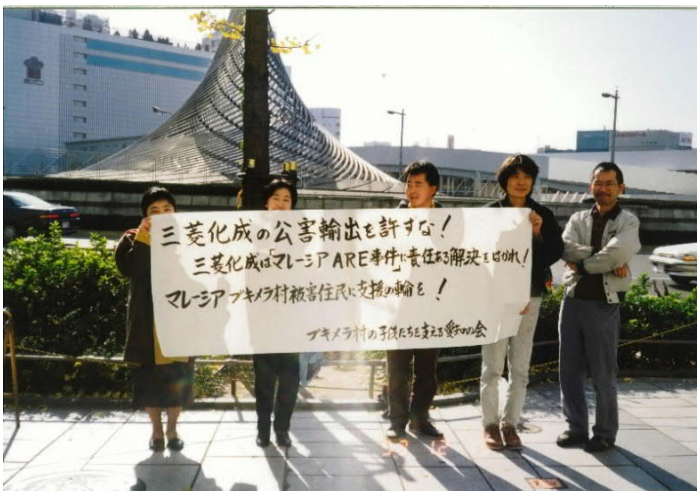 三菱化成の公害輸出を許すな!
三菱化成は「マレーシアARE事件」に責任ある解決をはかれ!
マレーシア ブキメラ村被害住民に支援の輪を!
ブキメラ村の子供たちを支える愛知の会